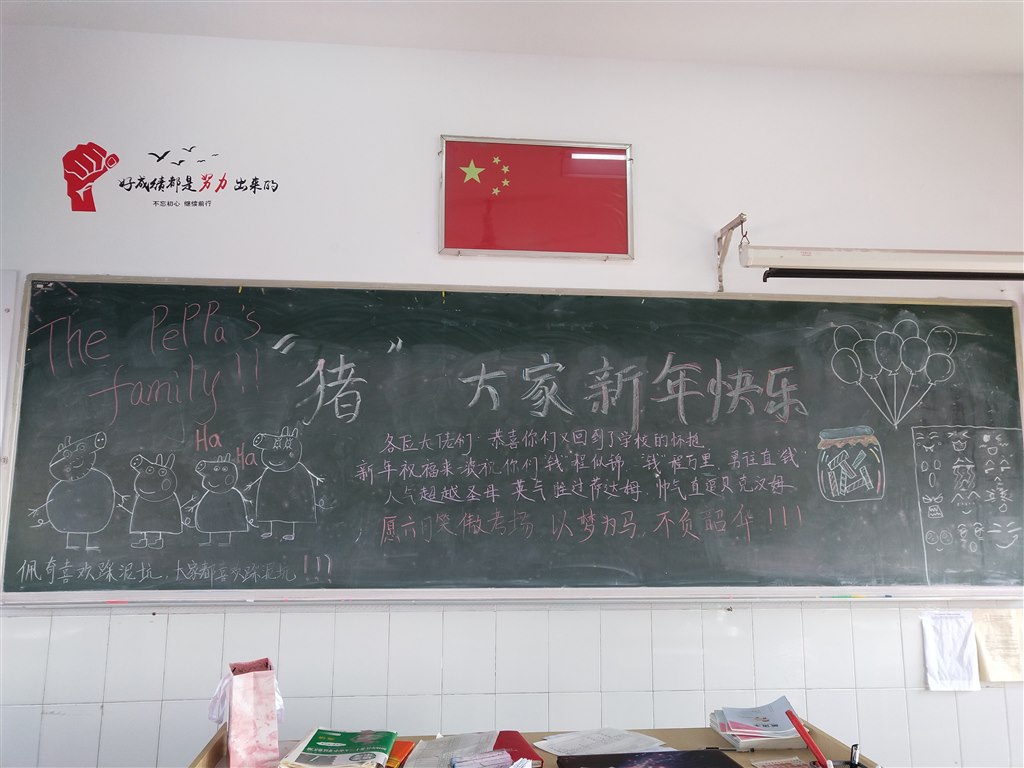 好成绩都是努力出来的
不忘初心 继续前行
The PePPa's
family!!
"猪" 大家新年快乐
Ha
Ha
各位大佬们:恭喜你们又回到了学校的怀抱
新年祝福来一波祝你们"钱"程似锦,"钱"程万里,勇往直"钱"
人气超越圣母 英气胜过萨达姆,帅气直逼贝克汉姆
愿六月笑傲考场 以梦为马,不负韶华!!!
佩奇喜欢踩泥坑,大家都喜欢踩泥坑!!!